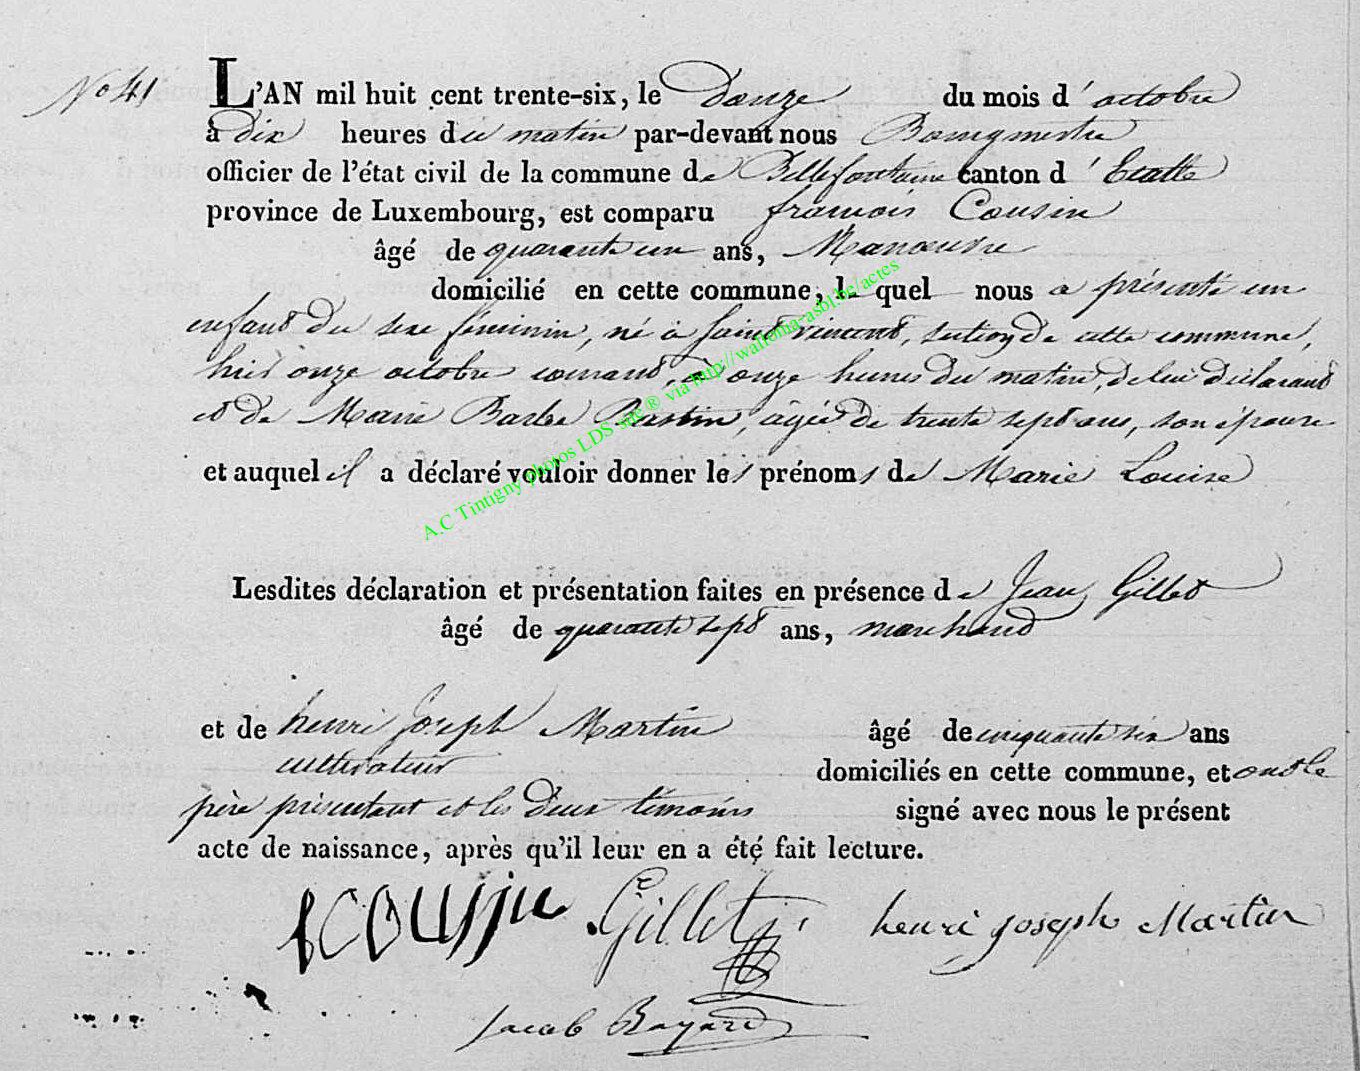 N° 41
L'AN mil huit cent trente-six, le Douze du mois d'octobre
à dix heures du matin par-devant nous Bourgmestre
officier de l'état civil de la commune de Bellefontaine canton d'Etalle
province de Luxembourg, est comparu françois Cousin
âgé de quarante un ans, Manœuvre
domicilié en cette commune, le quel nous a présenté un
enfant du sexe féminin, né à Saint vincent, section de cette commune,
hier onze octobre courant, à onze heures du matin, de lui déclarant
et de Marie Barbe Bastin, âgée de trente sept ans, son épouse
et auquel il a déclaré vouloir donner les prénoms de Marie Louise
Lesdites déclaration et présentation faites en présence de Jean Gillet
âgé de quarante sept ans, marchand
et de henri joseph Martin âgé de cinquante six ans
cultivateur domiciliés en cette commune, et ont le
père présentant et les deux témoins signé avec nous le présent
acte de naissance, après qu'il leur en a été fait lecture.
fCousin Gillet henri joseph Martin
Jacob Bayard
A.C Tintigny photos LDS site ® via http://wallonia-asbl.be/actes